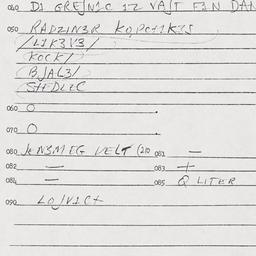 040 DI GREJNIC IZ VAJT FIN DAN
050 RADZIN3R KOPCHIK3S
/LIK3V3/
KOCK/
BJAL3/
SHEDLEC
060 O
070 O
080 JENSMEG VELT (210 081 —
082 — 083 +
084 — 085 Q LITER
090 LOJVICH